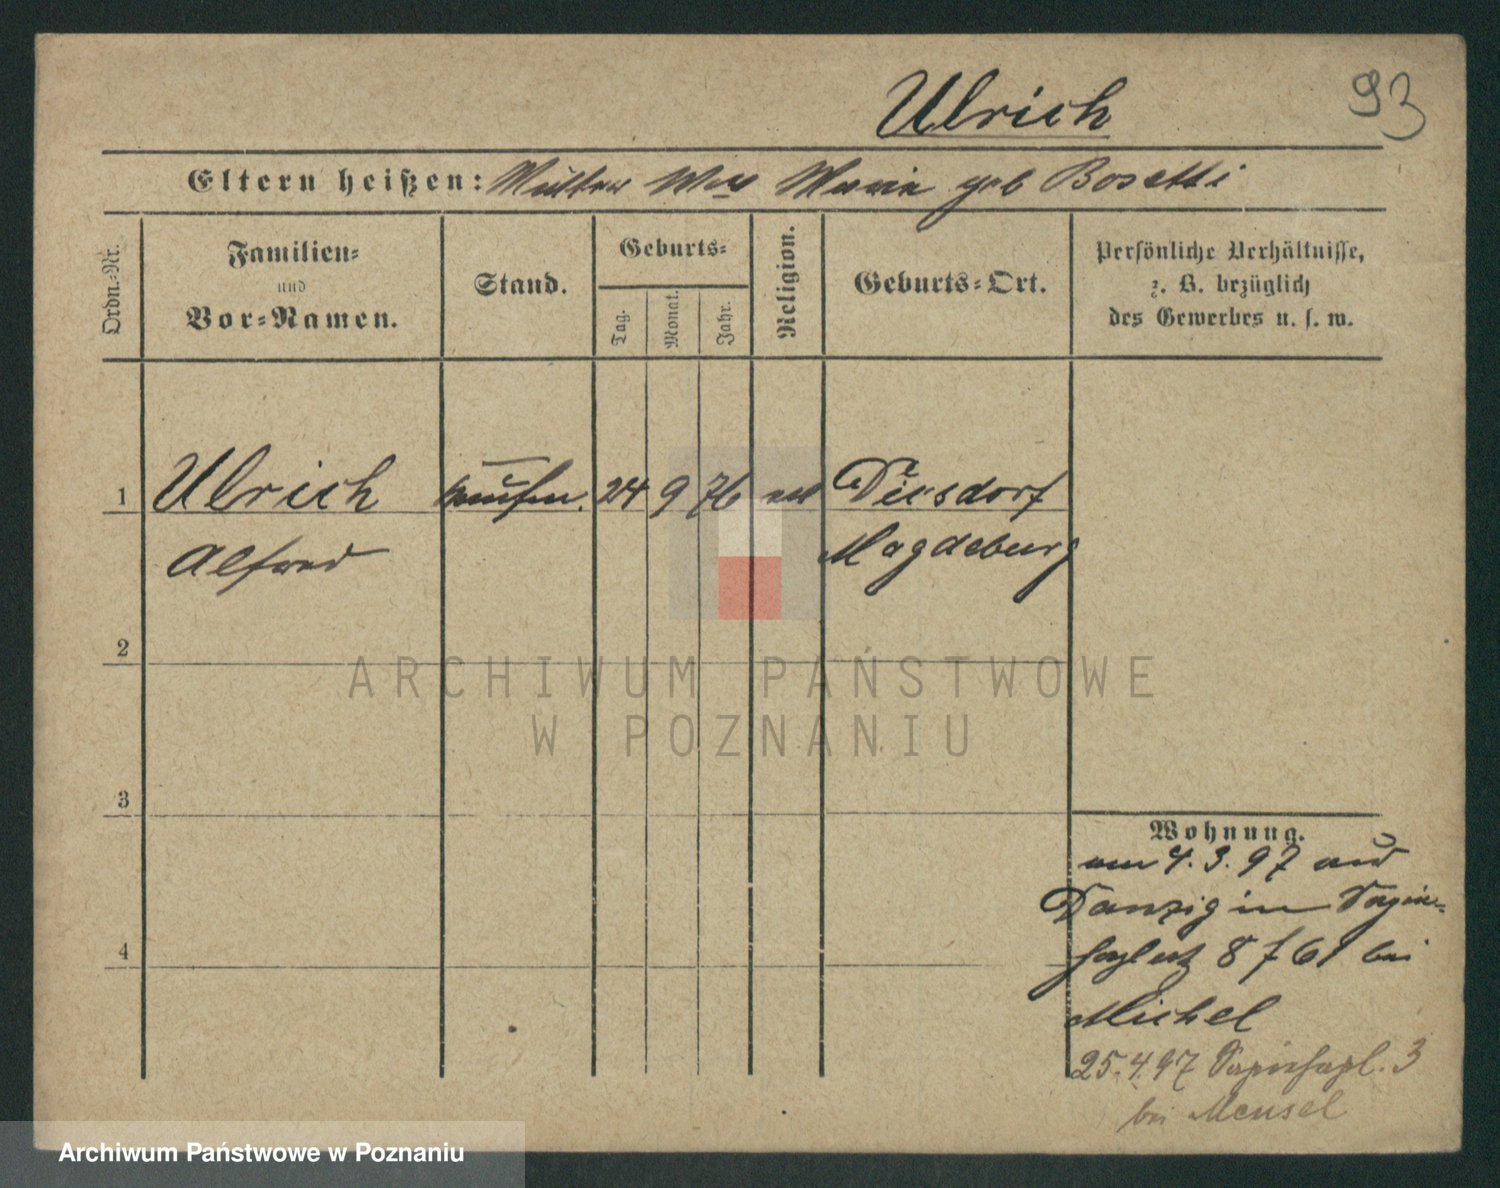 93
Ulrich
Eltern heißen: Mutter Wwe Maria geb Bosetti
Ordn.-Nr.
Familien-
und
Vor-Namen.
Stand.
Geburts-
Tag.
Monat.
Jahr.
Religion.
Geburts-Ort.
Persönliche Verhältnisse,
z. B. bezüglich
des Gewerbes u. s. w.
1 Ulrich Kaufm. 24 9 76 Diesdorf
Alfred Magdeburg
2
ARCHIWUM PAŃSTWOWE
W POZNANIU
3
4
Wohnung.
am 4.3.97 aus
Danzig in
8 bei
Michel
25.4.97 3
bei Mensel
Archiwum Państwowe w Poznaniu